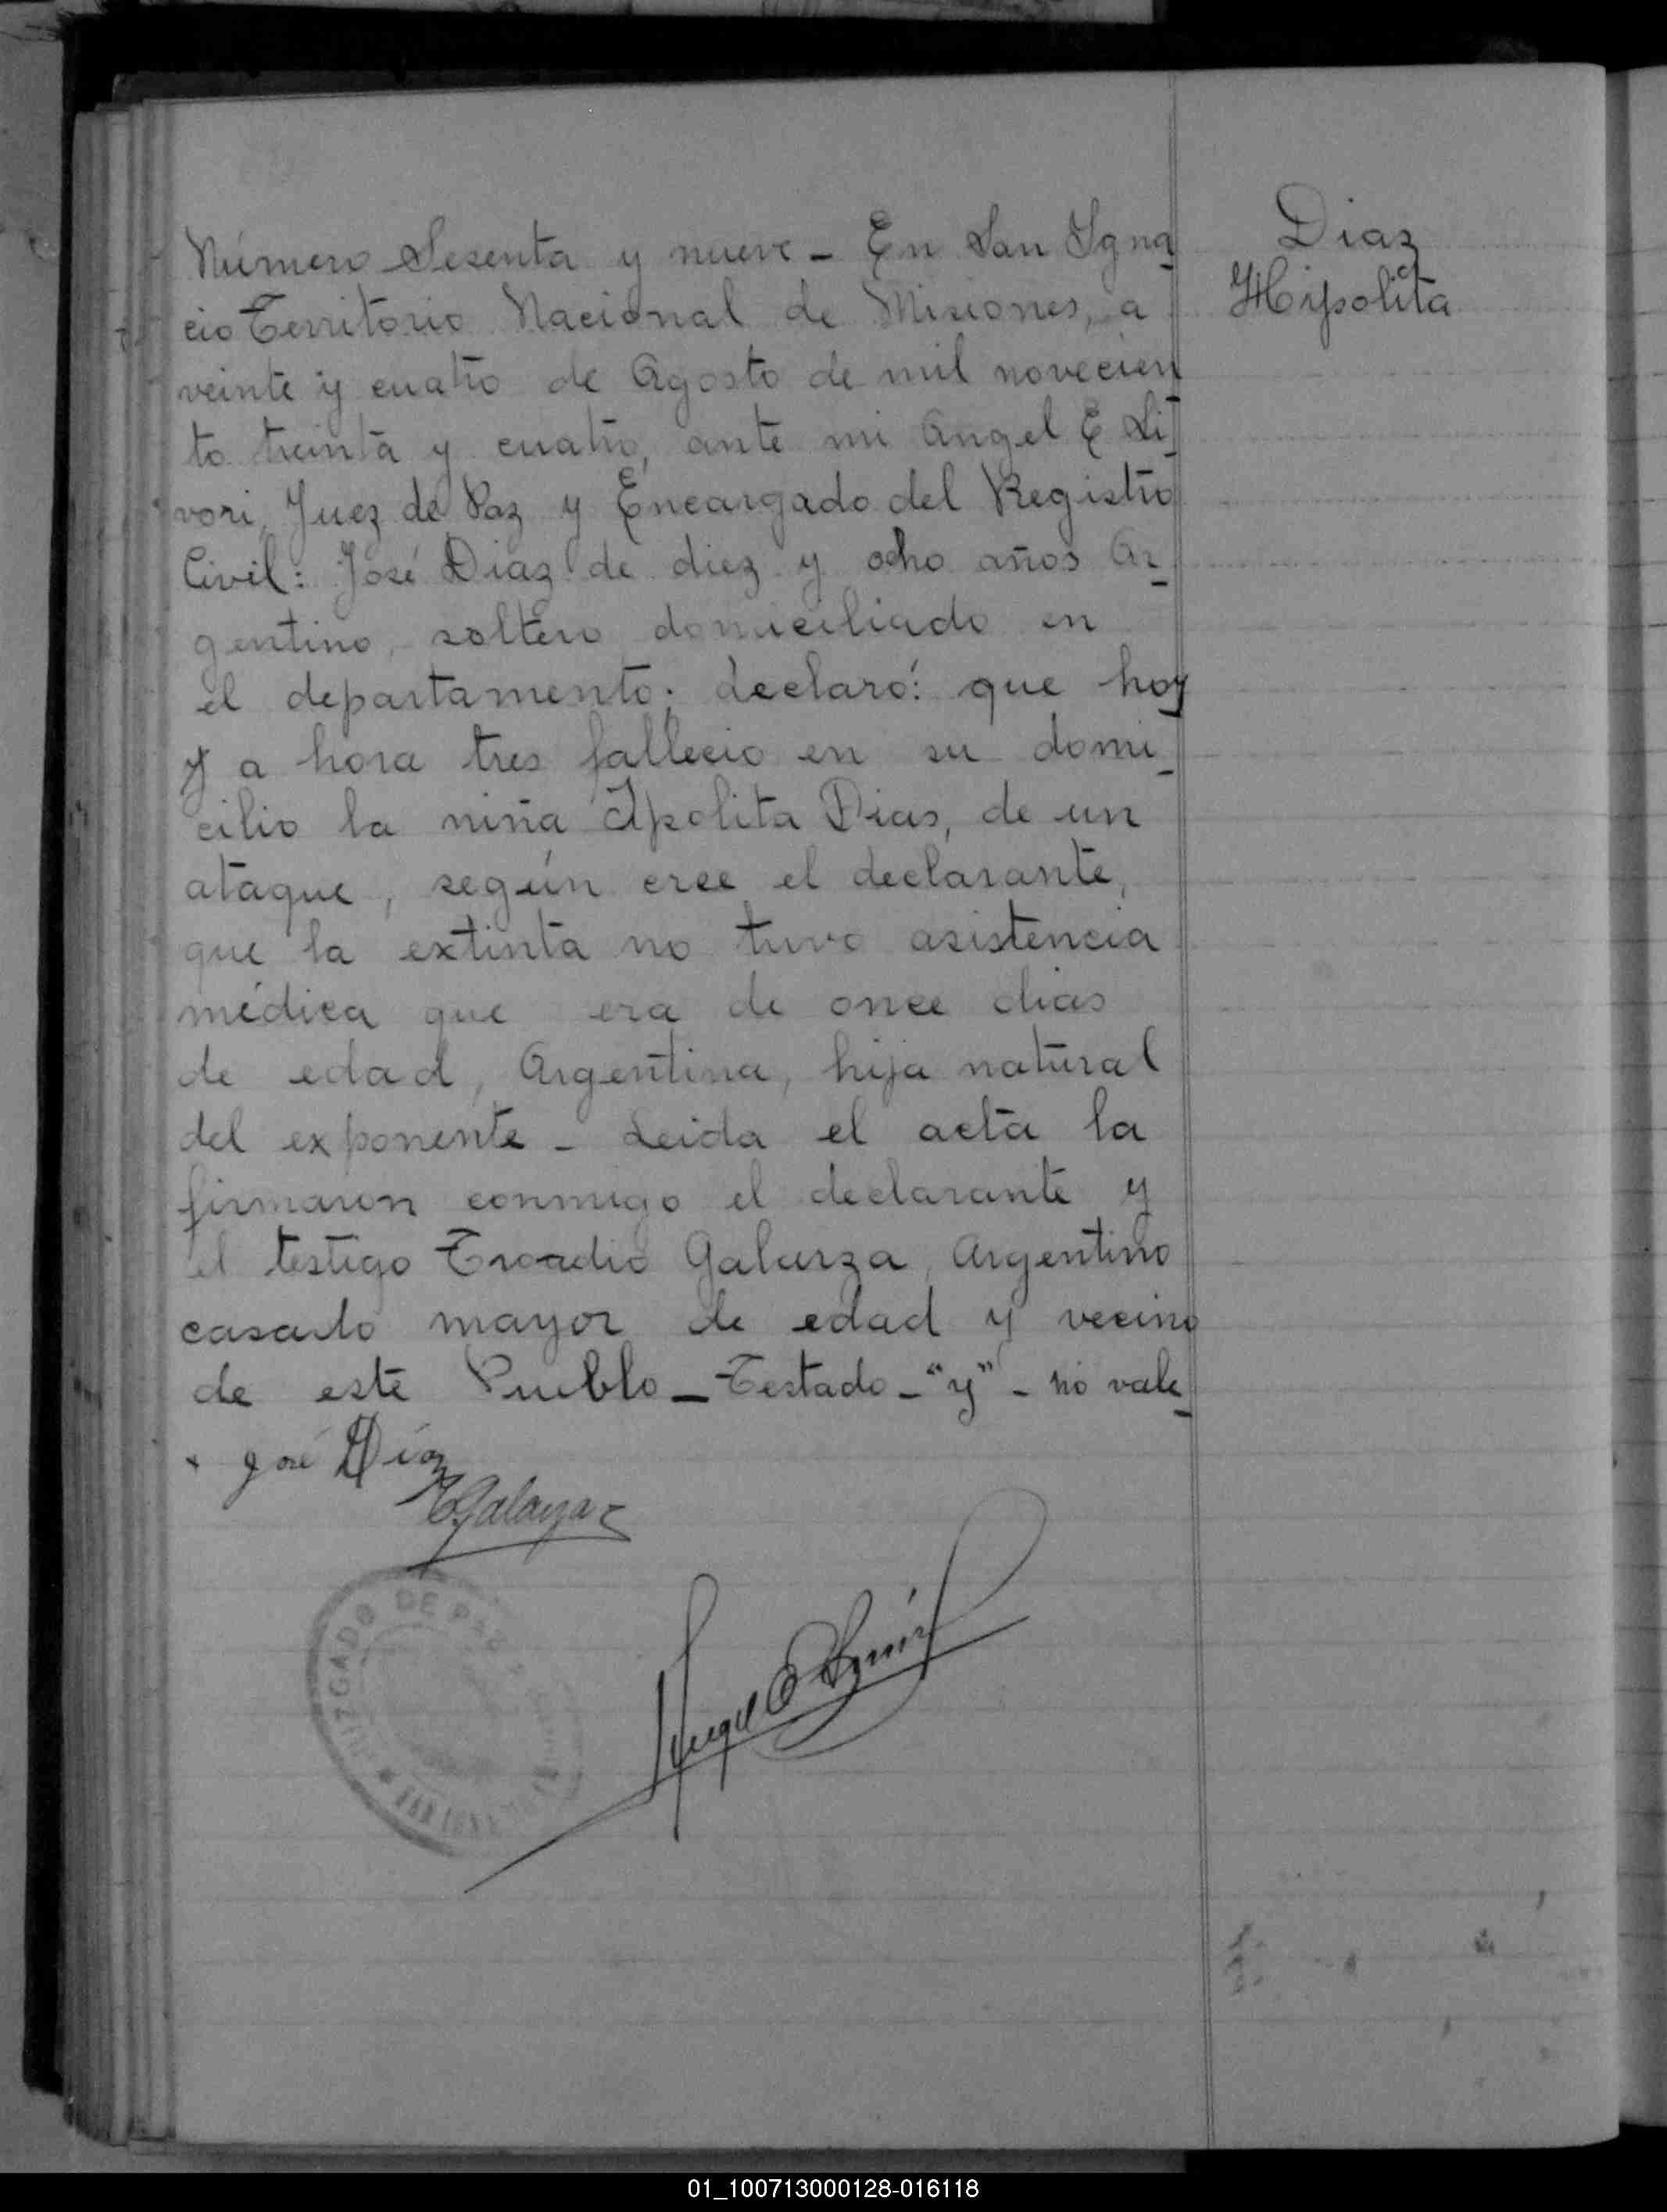 Número Sesenta y nueve - En San Igna
cio Territorio Nacional de Misiones, a
veinte y cuatro de Agosto de mil novecien
to treinta y cuatro, ante mi Angel E Li
vori, Juez de Paz y Encargado del Registro
Civil: José Diaz de diez y ocho años Ar
gentino, soltero domiciliado en
el departamento; declaró: que hoy
y a hora tres fallecio en su domi
cilio la niña Ipolita Dias, de un
ataque, según cree el declarante,
que la extinta no tuvo asistencia
médica que era de once dias
de edad, Argentina, hija natural
del exponente - Leida el acta la
firmaron conmigo el declarante y
el testigo Troadio Galarza, Argentino
casado mayor de edad y vecino
de este Pueblo - Testado - "y" - no vale
Diaz
Hipolita
José Díaz
TGalarza
JUZGADO DE PAZ
Angel E Livori
01_100713000128-016118